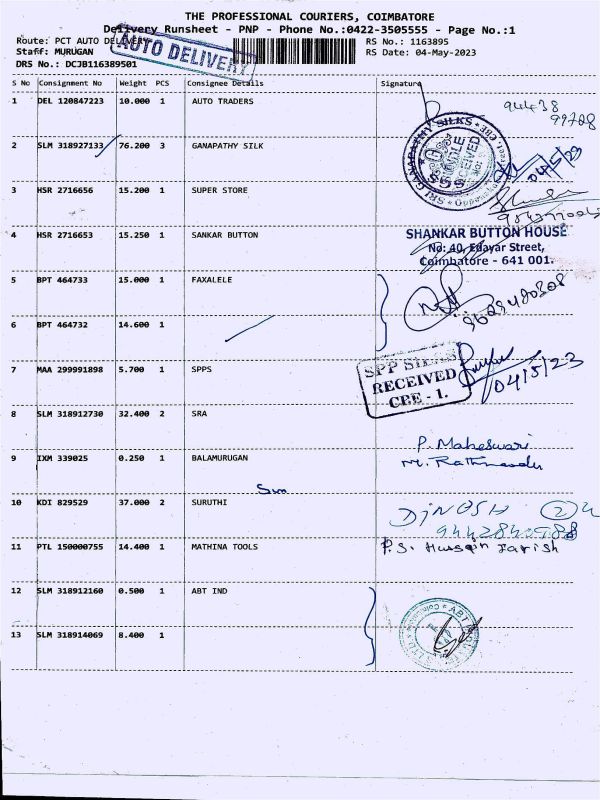 THE PROFESSIONAL COURIERS, COIMBATORE
Delivery Runsheet - PNP - Phone No.:0422-3505555 - Page No.:1
Route: PCT AUTO DELIVERY
RS No.: 1163895
Staff: MURUGAN
RS Date: 04-May-2023
DRS No.: DCJB116389501
AUTO DELIVERY
S No Consignment No Weight PCS Consignee Details Signature
1 DEL 120847223 10.000 1 AUTO TRADERS
94438
99728
2 SLM 318927133 76.200 3 GANAPATHY SILK
SRI GANAPATHY SILKS
RECEIVED
SGS
04/5/23
3 HSR 2716656 15.200 1 SUPER STORE
4 HSR 2716653 15.250 1 SANKAR BUTTON
SHANKAR BUTTON HOUSE
No: 40, Edayar Street,
Coimbatore - 641 001.
5 BPT 464733 15.000 1 FAXALELE
9629480808
6 BPT 464732 14.600 1
7 MAA 299991898 5.700 1 SPPS
SPP SILKS
RECEIVED
CBE - 1.
04/5/23
8 SLM 318912730 32.400 2 SRA
P. Maheswari
9 IXM 339025 0.250 1 BALAMURUGAN
10 KDI 829529 37.000 2 SURUTHI
DINOSH 2
11 PTL 150000755 14.400 1 MATHINA TOOLS
P.S. Hussain Jarish
12 SLM 318912160 0.500 1 ABT IND
ABT
13 SLM 318914069 8.400 1